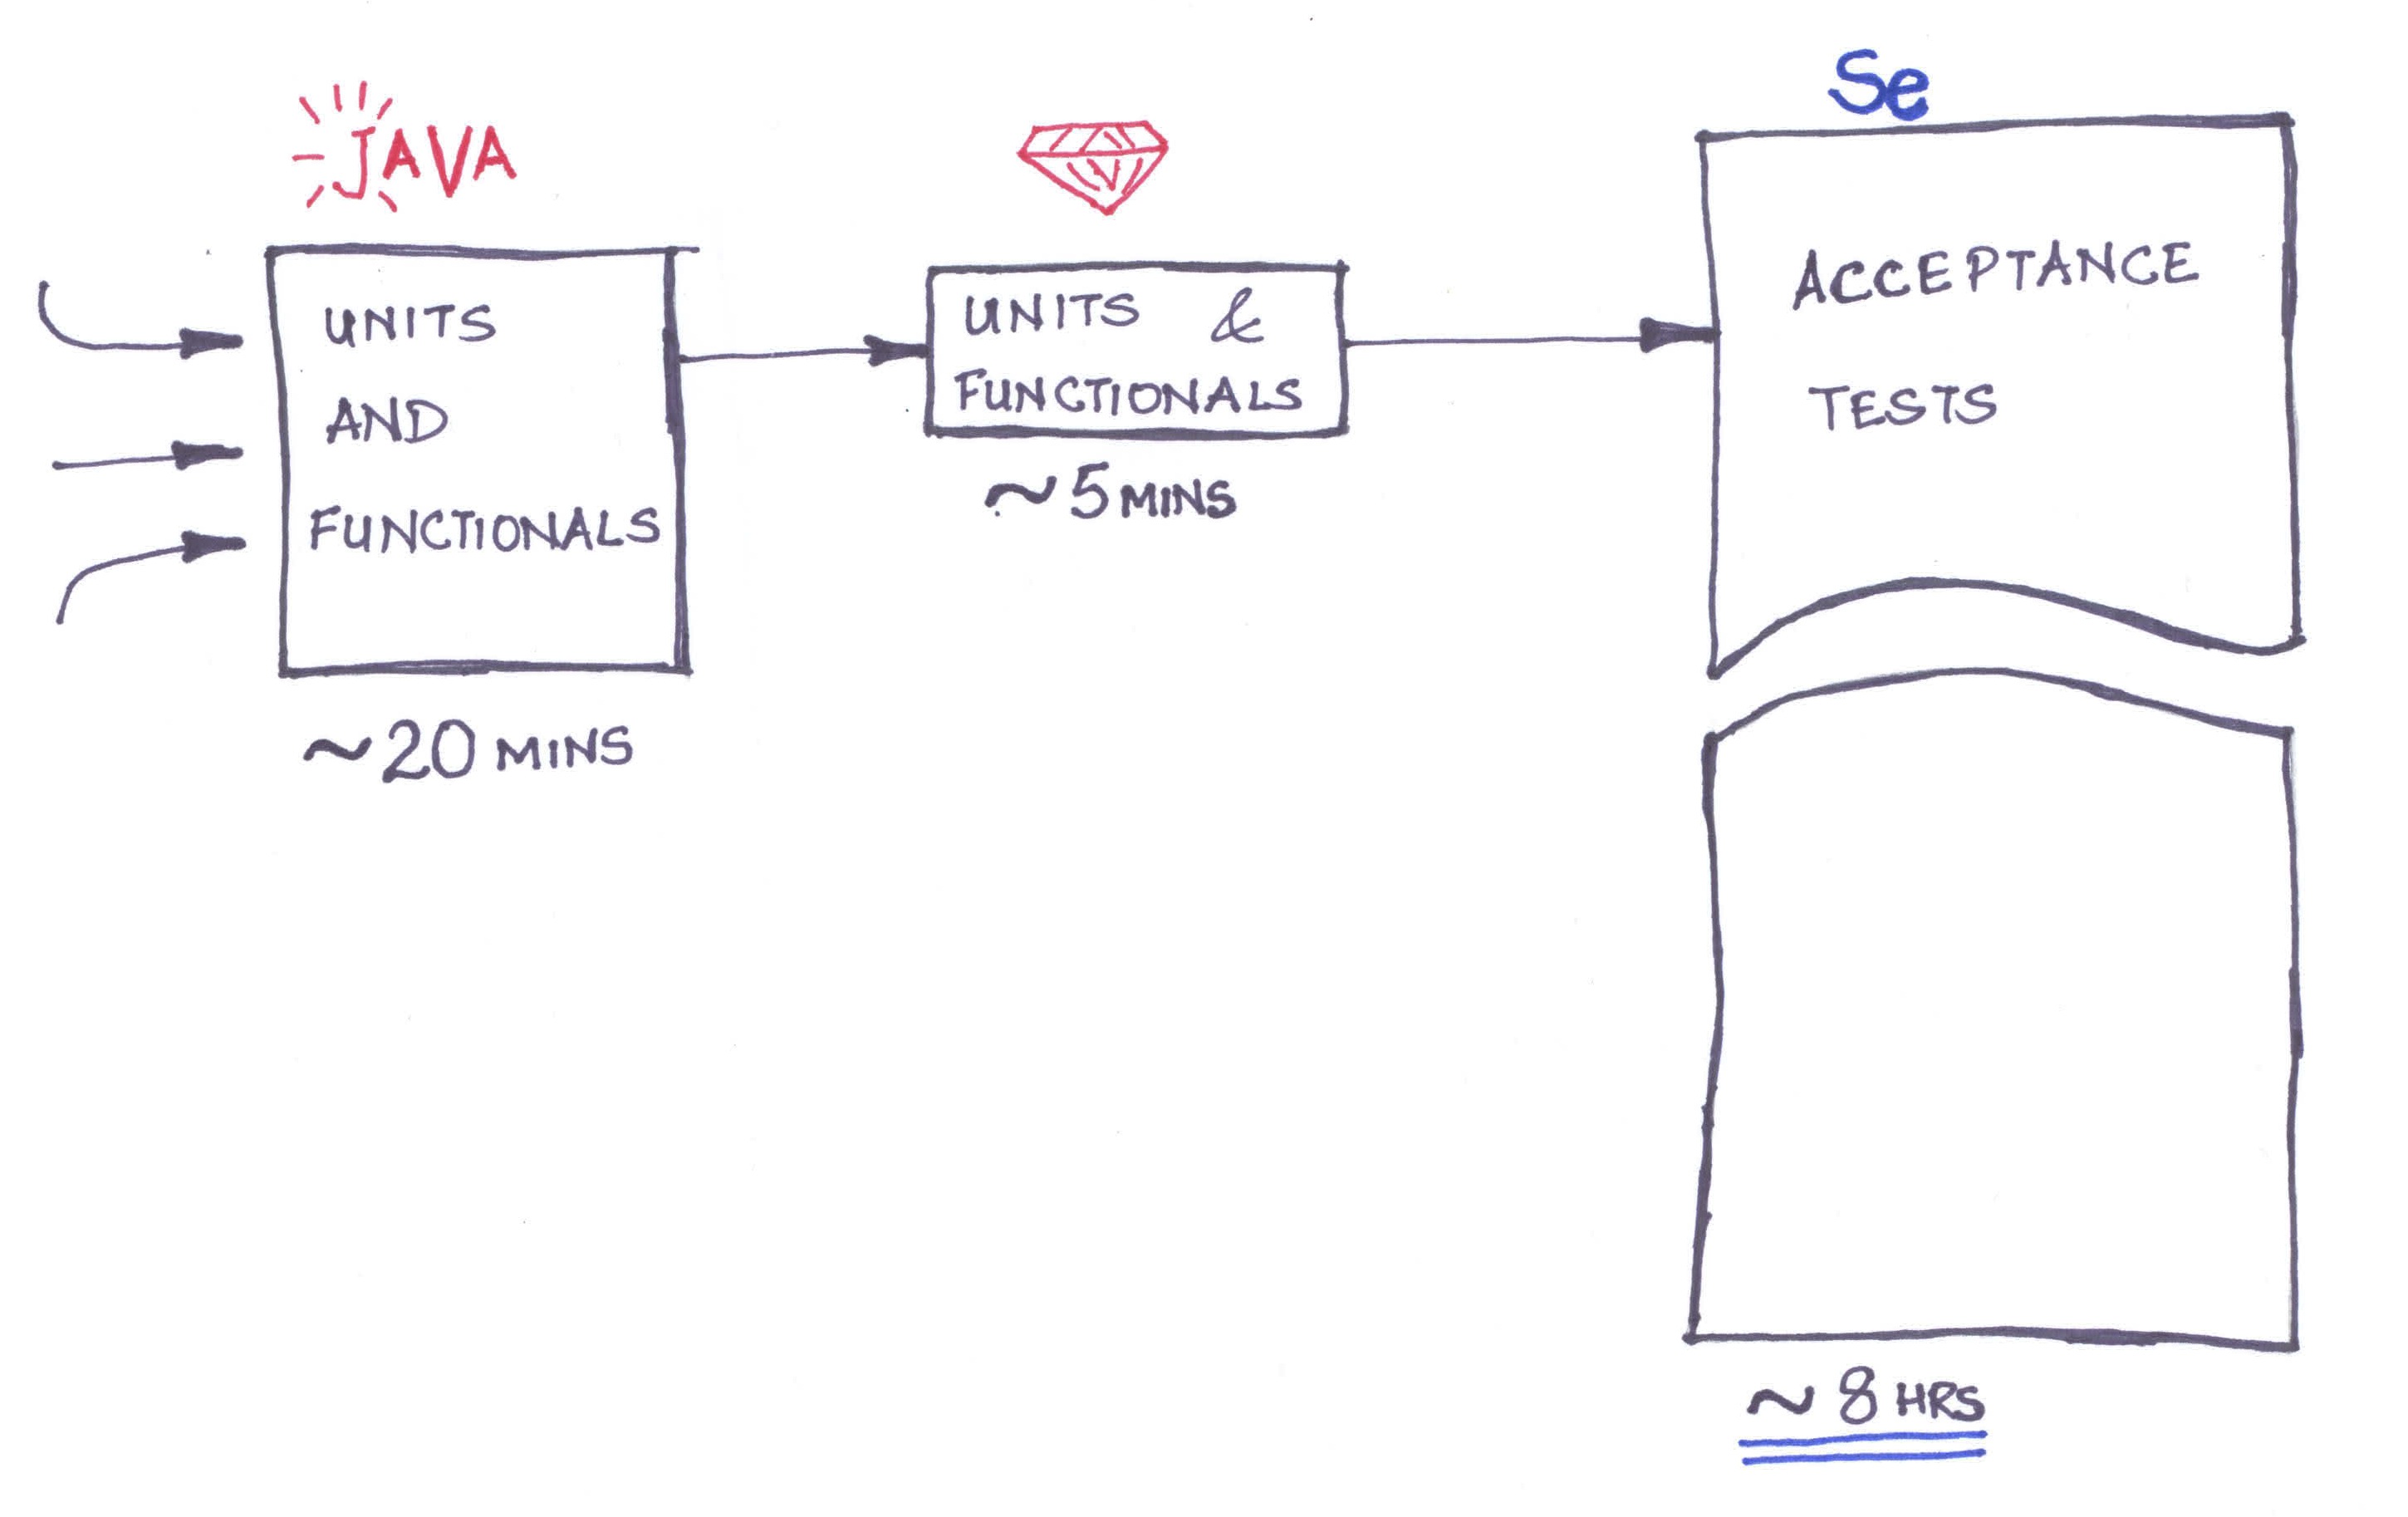 JAVA
UNITS
AND
FUNCTIONALS
~20 MINS
UNITS &
FUNCTIONALS
~5 MINS
Se
ACCEPTANCE
TESTS
~ 8 HRS